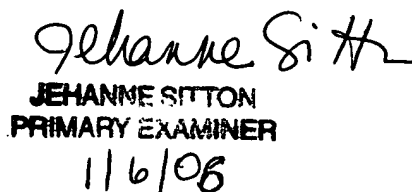 Jehanne Sitton
JEHANNE SITTON
PRIMARY EXAMINER
1/6/06